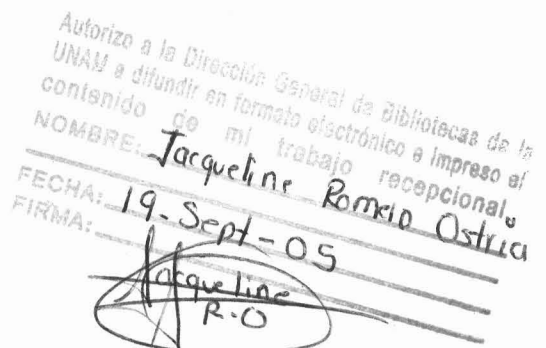 Autorizo a la Dirección General de Bibliotecas de la
UNAM a difundir en formato electrónico e impreso el
contenido de mi trabajo recepcional.
NOMBRE: Jacqueline Romero Ostria
FECHA: 19-Sept-05
FIRMA: Jacqueline
R.O